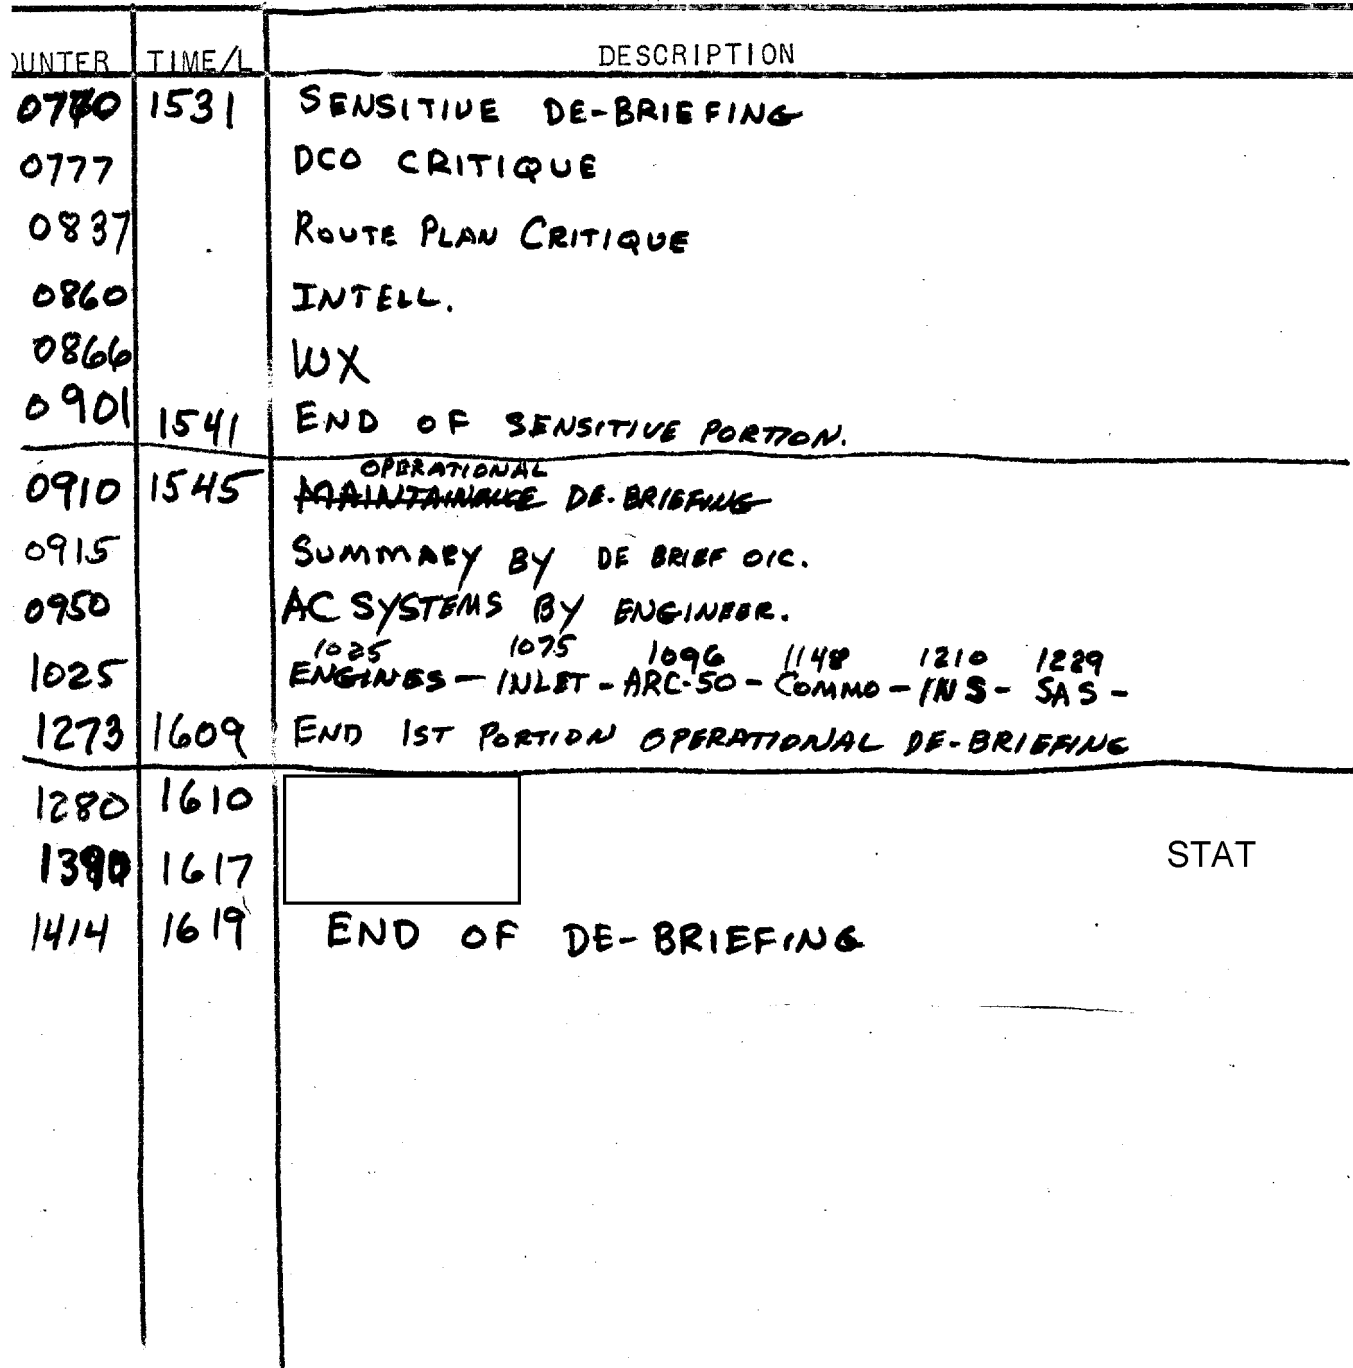 OUNTER TIME/L DESCRIPTION
0770 1531 SENSITIVE DE-BRIEFING
0777 DCO CRITIQUE
0837 ROUTE PLAN CRITIQUE
0860 INTELL.
0866 WX
0901 1541 END OF SENSITIVE PORTION.
OPERATIONAL
0910 1545 MAINTAINANCE DE-BRIEFING
0915 SUMMARY BY DE BRIEF OIC.
0950 AC SYSTEMS BY ENGINEER.
1025 1075 1096 1148 1210 1229
1025 ENGINES - INLET - ARC-50 - COMMO - INS - SAS -
1273 1609 END 1ST PORTION OPERATIONAL DE-BRIEFING
1280 1610
STAT
1390 1617
1414 1619 END OF DE-BRIEFING